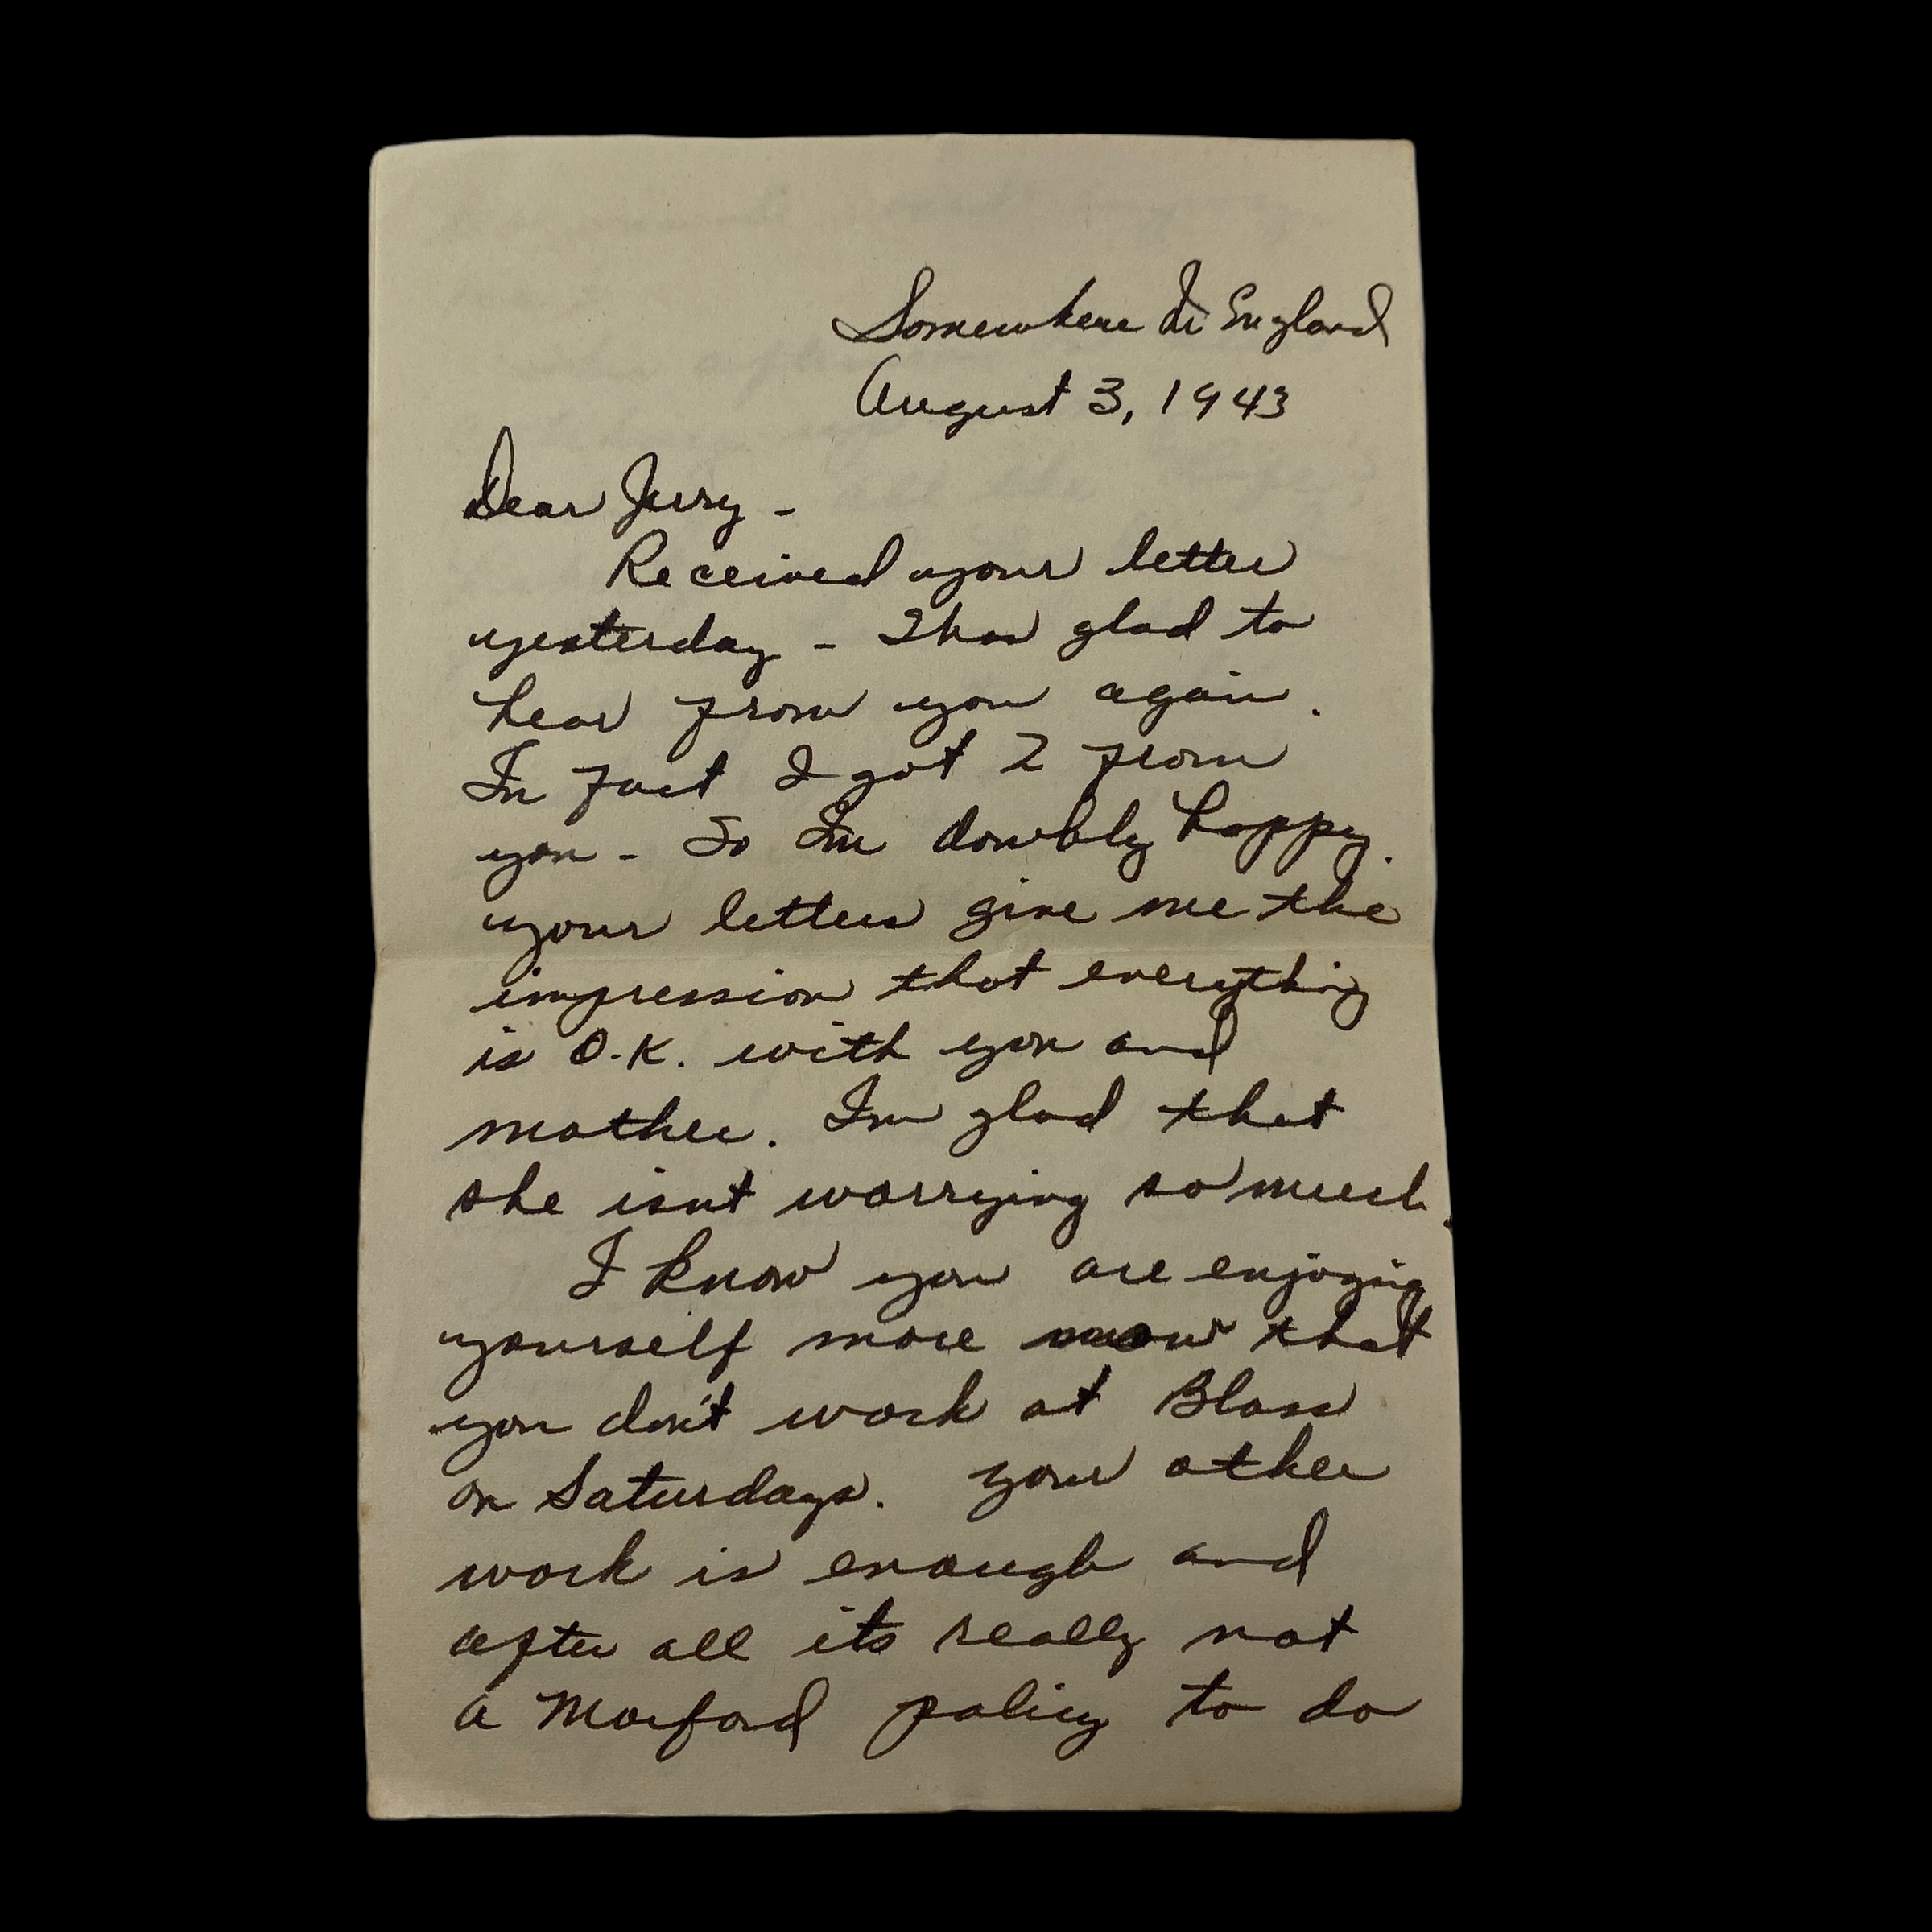 Somewhere In England
August 3, 1943
Dear Jerry -
Received your letter
yesterday - glad to
hear from you again.
In fact I got 2 from
you - So Im doubly happy.
your letters give me the
impression that everything
is O.K. with you and
mother. Im glad that
she isnt worrying so much.
I know you are enjoying
yourself more now that
you don't work at Blass
on Saturdays. your other
work is enough and
after all its really not
a Morford policy to do